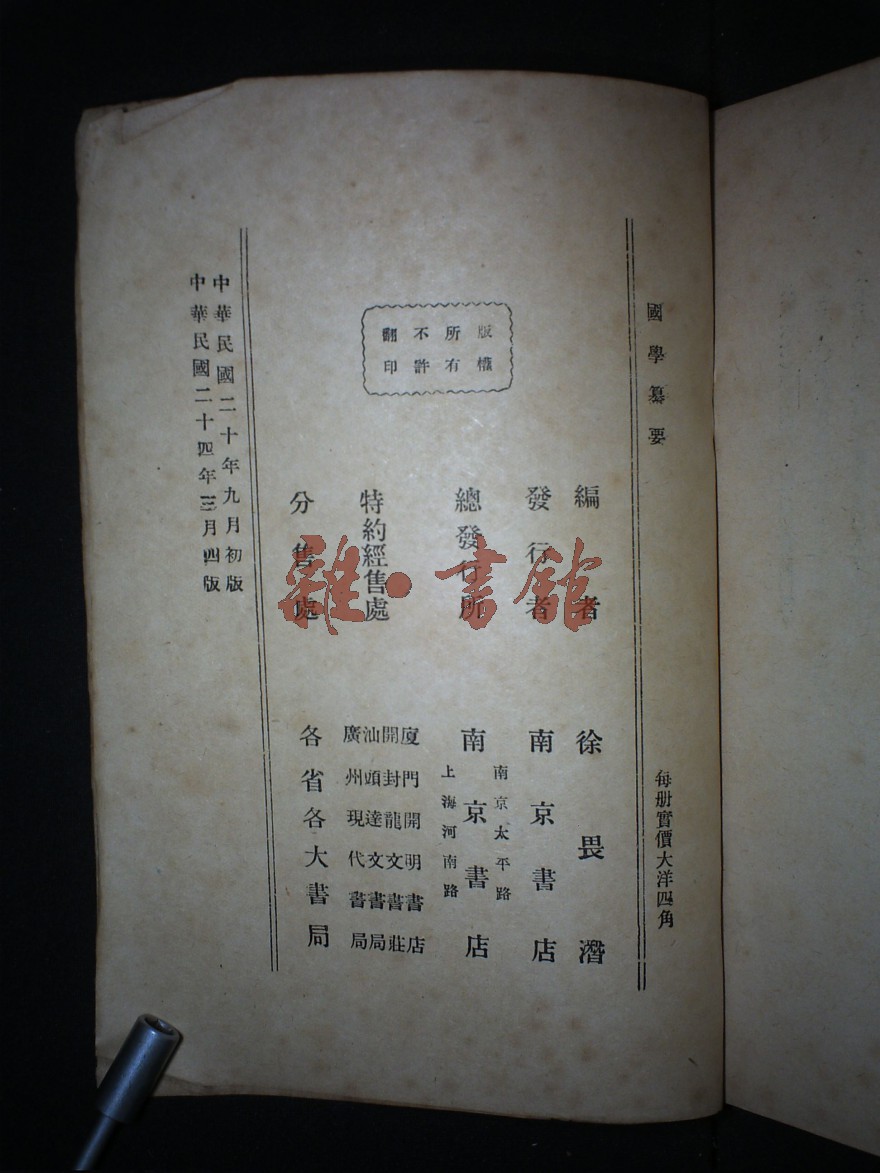 國學纂要
每册實價大洋四角
版權
所有
不許
翻印
編者 徐畏潛
發行者 南京書店
總發行所 南京書店
南京太平路
上海河南路
特約經售處
廈門開明書店
開封龍文書莊
汕頭達文書局
廣州現代書局
分售處 各省各大書局
中華民國二十年九月初版
中華民國二十四年三月四版
雜·書館